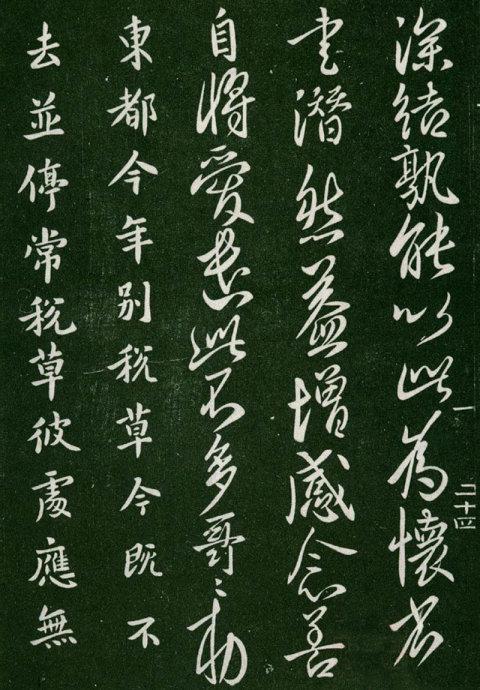 深結孰能以此為懷省
書潛然益增感念善
自將愛遣此不多哥〻勅
東都今年別稅草今既不
去並停常稅草彼處應無
一
二十四